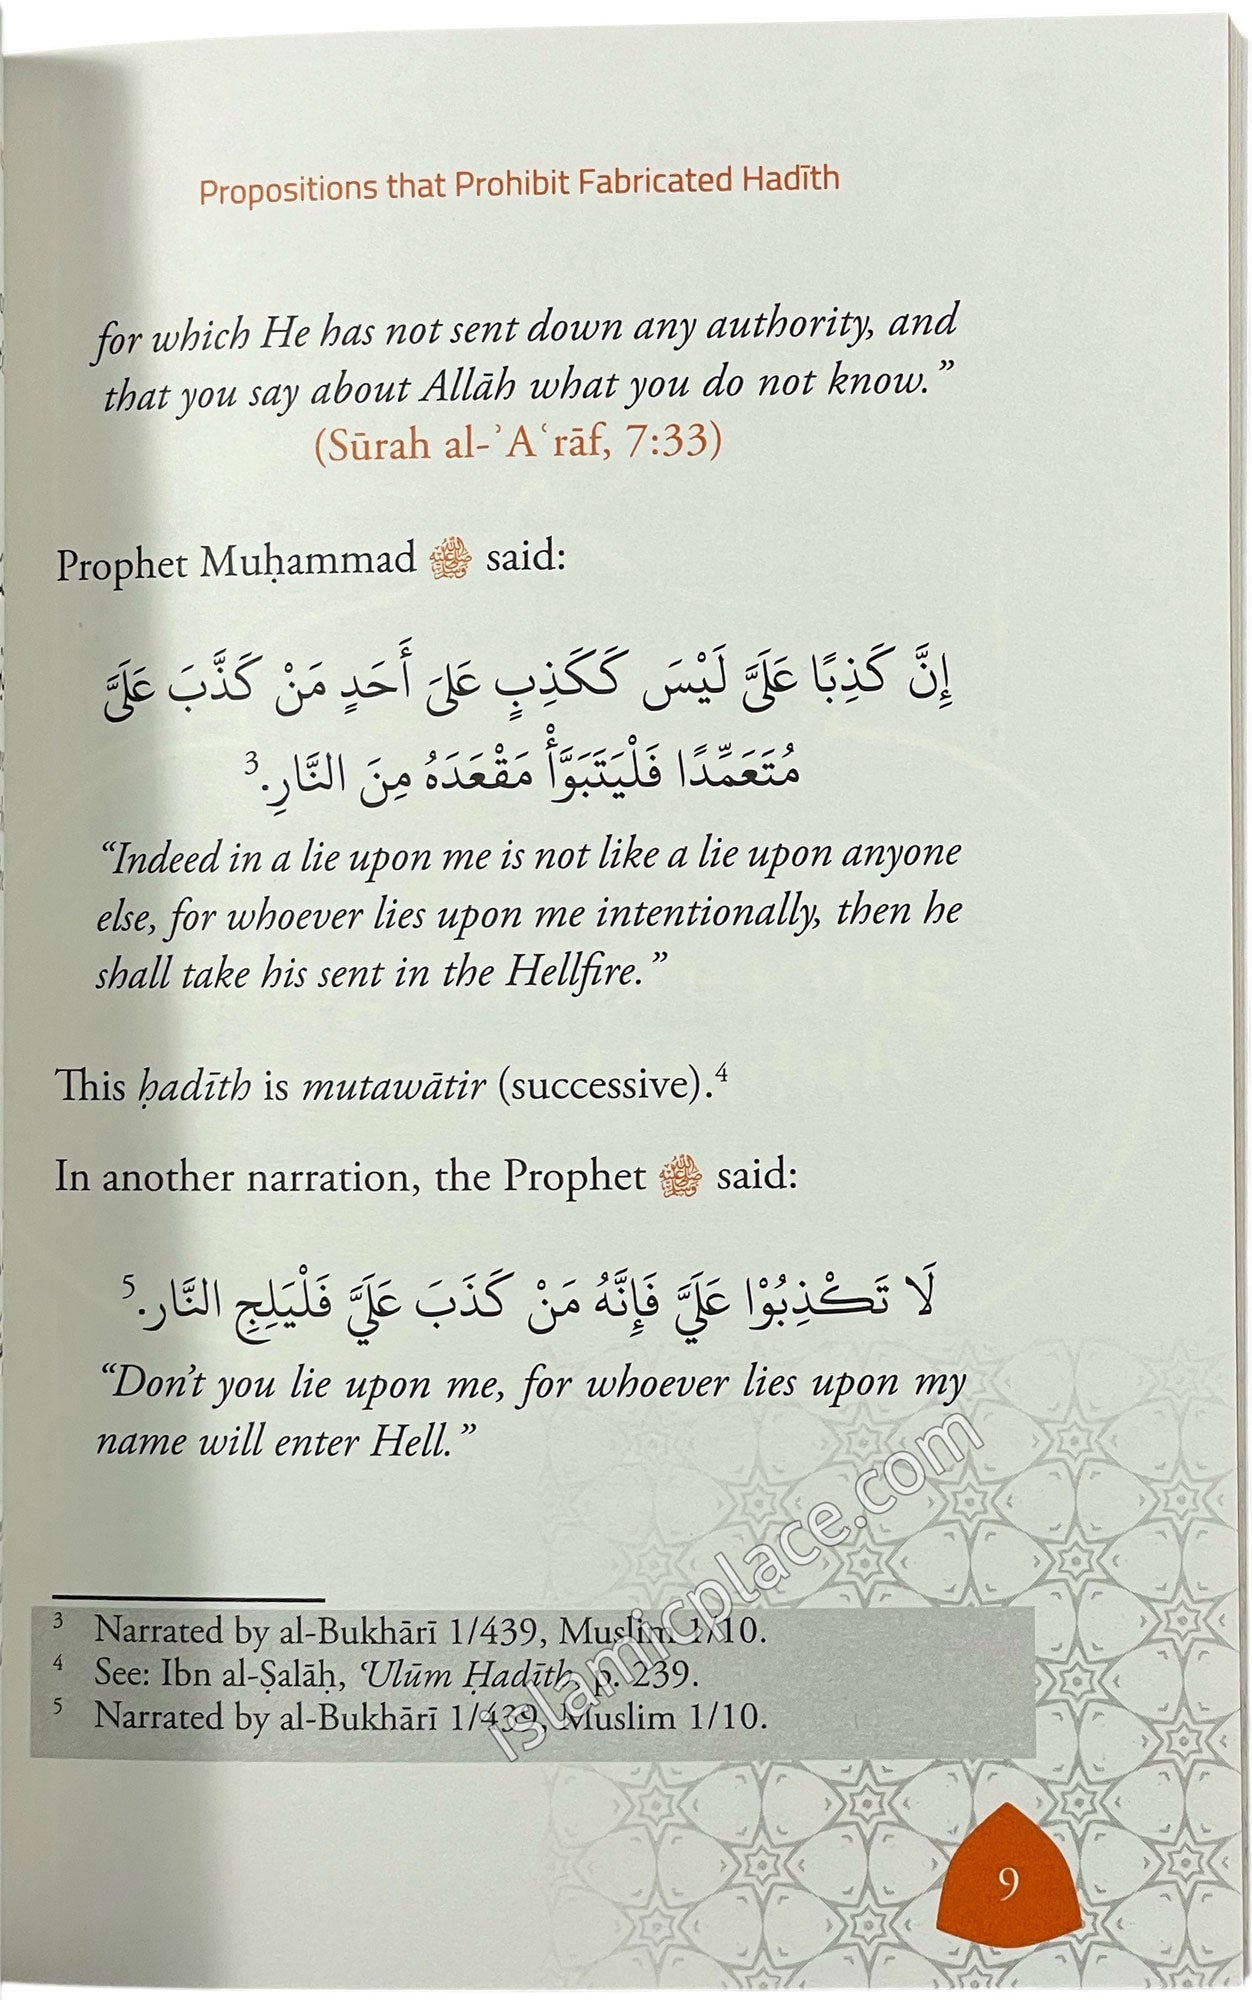 Propositions that Prohibit Fabricated Hadīth
for which He has not sent down any authority, and
that you say about Allāh what you do not know.”
(Sūrah al-ʾAʿrāf, 7:33)
Prophet Muḥammad ﷺ said:
إِنَّ كَذِبًا عَلَىَّ لَيْسَ كَكَذِبٍ عَلىَ أَحَدٍ مَنْ كَذَّبَ عَلَىَّ
مُتَعَمِّدًا فَلْيَتَبَوَّأْ مَقْعَدَهُ مِنَ النَّارِ.3
“Indeed in a lie upon me is not like a lie upon anyone
else, for whoever lies upon me intentionally, then he
shall take his sent in the Hellfire.”
This ḥadīth is mutawātir (successive).4
In another narration, the Prophet ﷺ said:
لَا تَكْذِبُوْا عَلَيَّ فَإِنَّهُ مَنْ كَذَبَ عَلَيَّ فَلْيَلِجِ النَّار.5
“Don’t you lie upon me, for whoever lies upon my
name will enter Hell.”
3 Narrated by al-Bukhārī 1/439, Muslim 1/10.
4 See: Ibn al-Ṣalāḥ, ‘Ulūm Ḥadīth, p. 239.
5 Narrated by al-Bukhārī 1/439, Muslim 1/10.
islamicplace.com
9